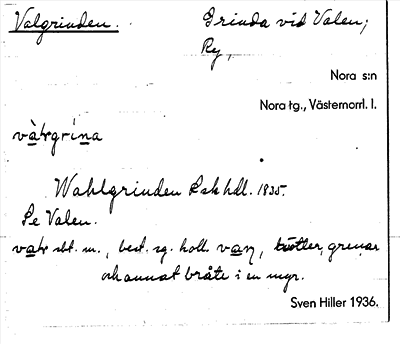 Valgrinden. Grinda vid Valen;
Ry,
Nora s:n
Nora tg., Västernorrl. l.
Wahlgrinden Lskhdl. 1835.
Se Valen.
sbt. m., best. sg. koll. van, rötter, grenar
och annat bråte i en myr.
Sven Hiller 1936.